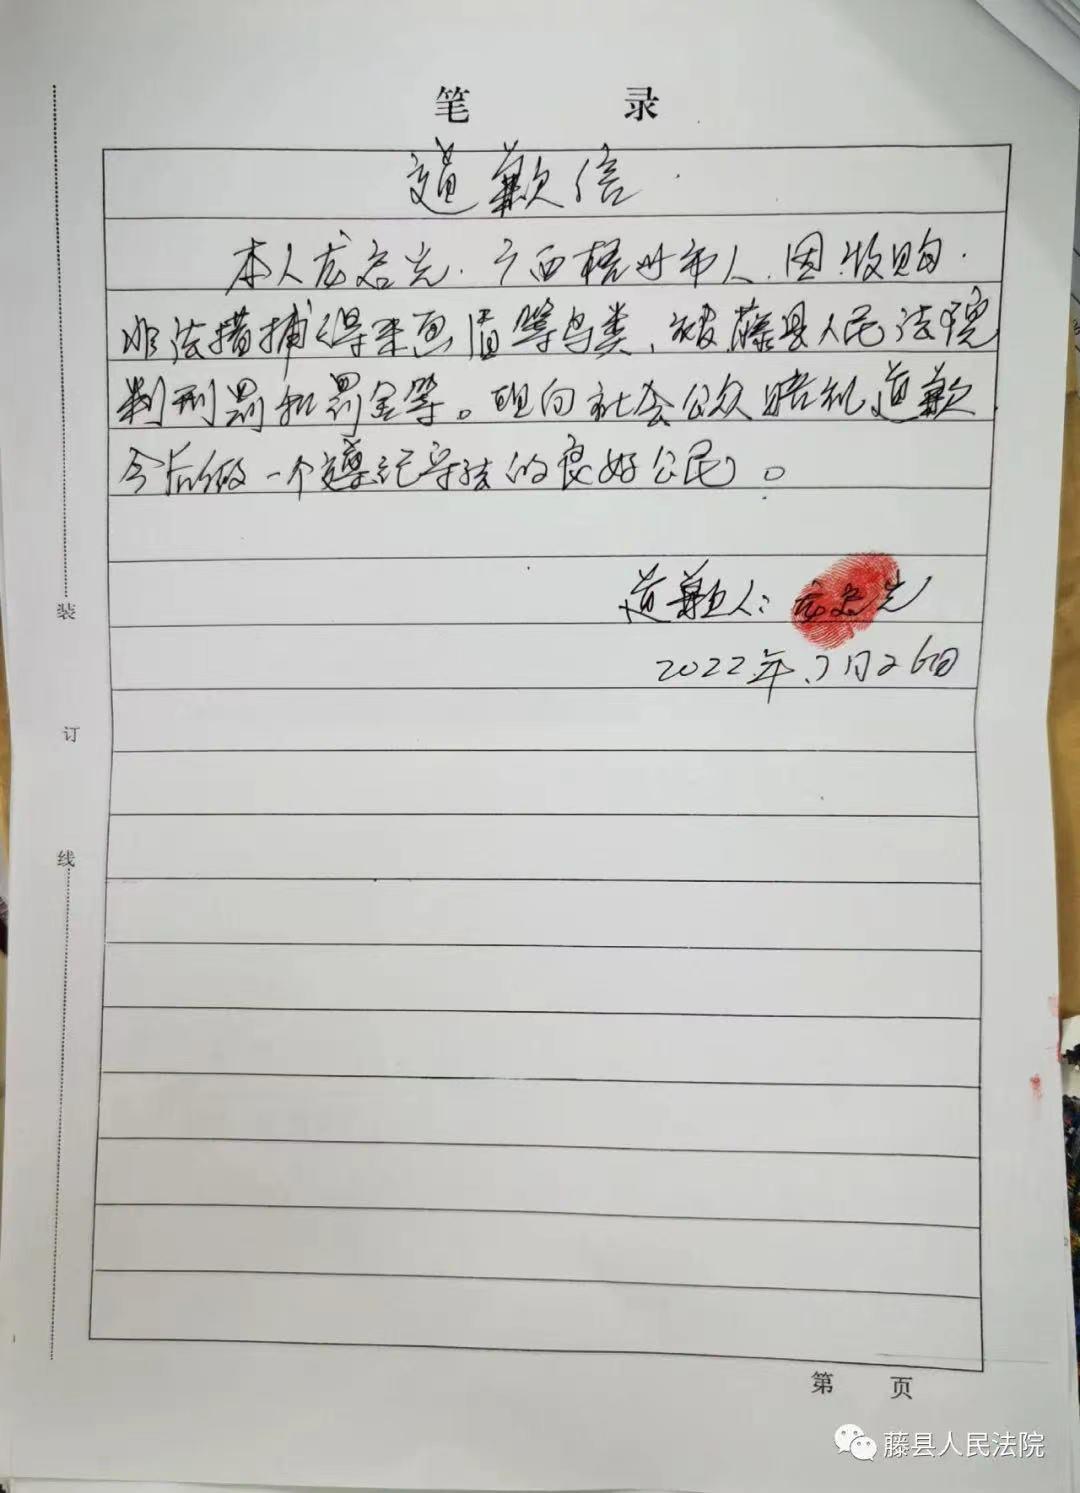 笔 录
道歉信
本人 广西梧州市人.因收购.
非法猎捕得来画眉等鸟类,被藤县人民法院
判刑罚和罚金等。现向社会公众赔礼道歉
今后做一个遵纪守法的良好公民。
道歉人:
2022年 月26日
装
订
线
第 页
藤县人民法院